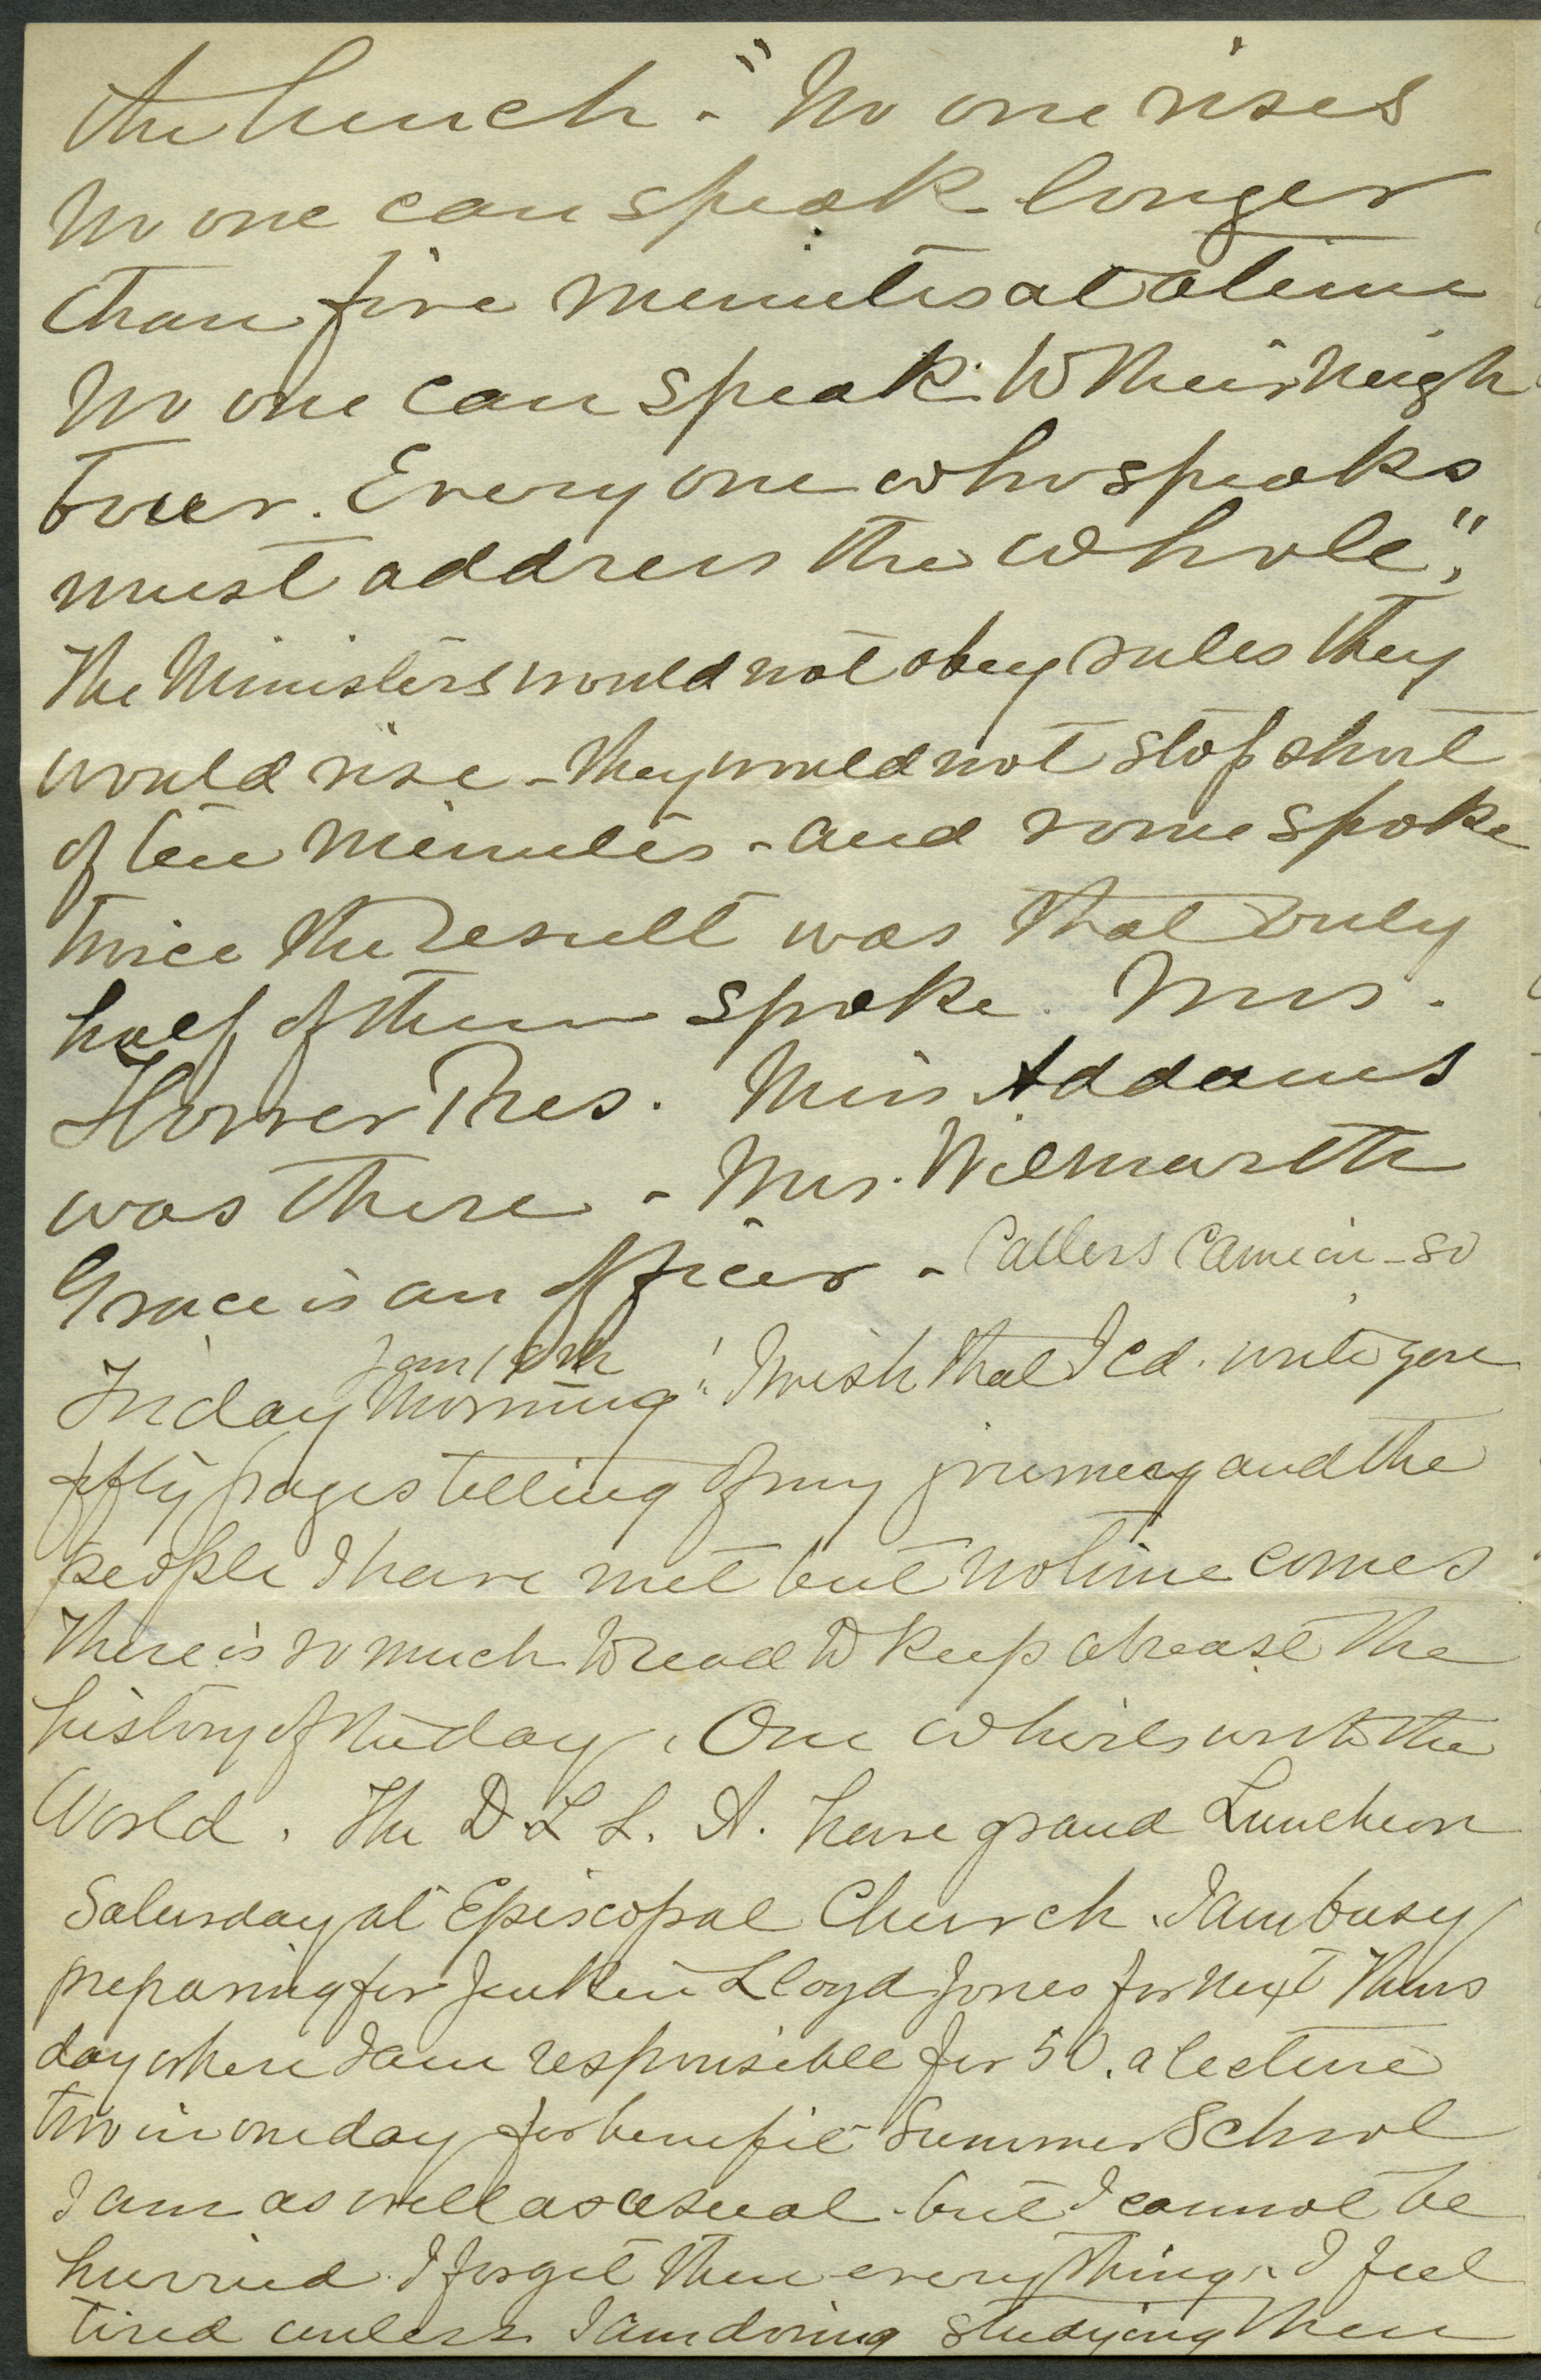 the lunch - "No one rises
No one can speak longer
than five minutes at a time
No one can speak to their neigh
bour. Every one who speaks
must address the whole".
The Ministers would not obey rules they
would rise - they would not stop short
of ten minutes - and some spoke
twice the result was that only
half of them spoke. Mrs.
Pres. Miss Addams
was there - Mrs. Wilmarth
Grace is an officer - Callers came in - so
Jan 18th
Friday Morning! I wish that I cd. write you
fifty pages telling of my journey and the
people I have met but no time comes
There is so much to read to keep abreast the
history of the day. One whirls with the
World. The D. L. L. A. have grand Luncheon
Saturday at Episcopal Church. I am busy
preparing for Jenkin Lloyd Jones for next Thurs
day where I am responsible for 50. a lecture
two in one day for benefit Summer School
I am as well as usual - but I cannot be
hurried. I forget then everything. I feel
tired unless I am doing studying then